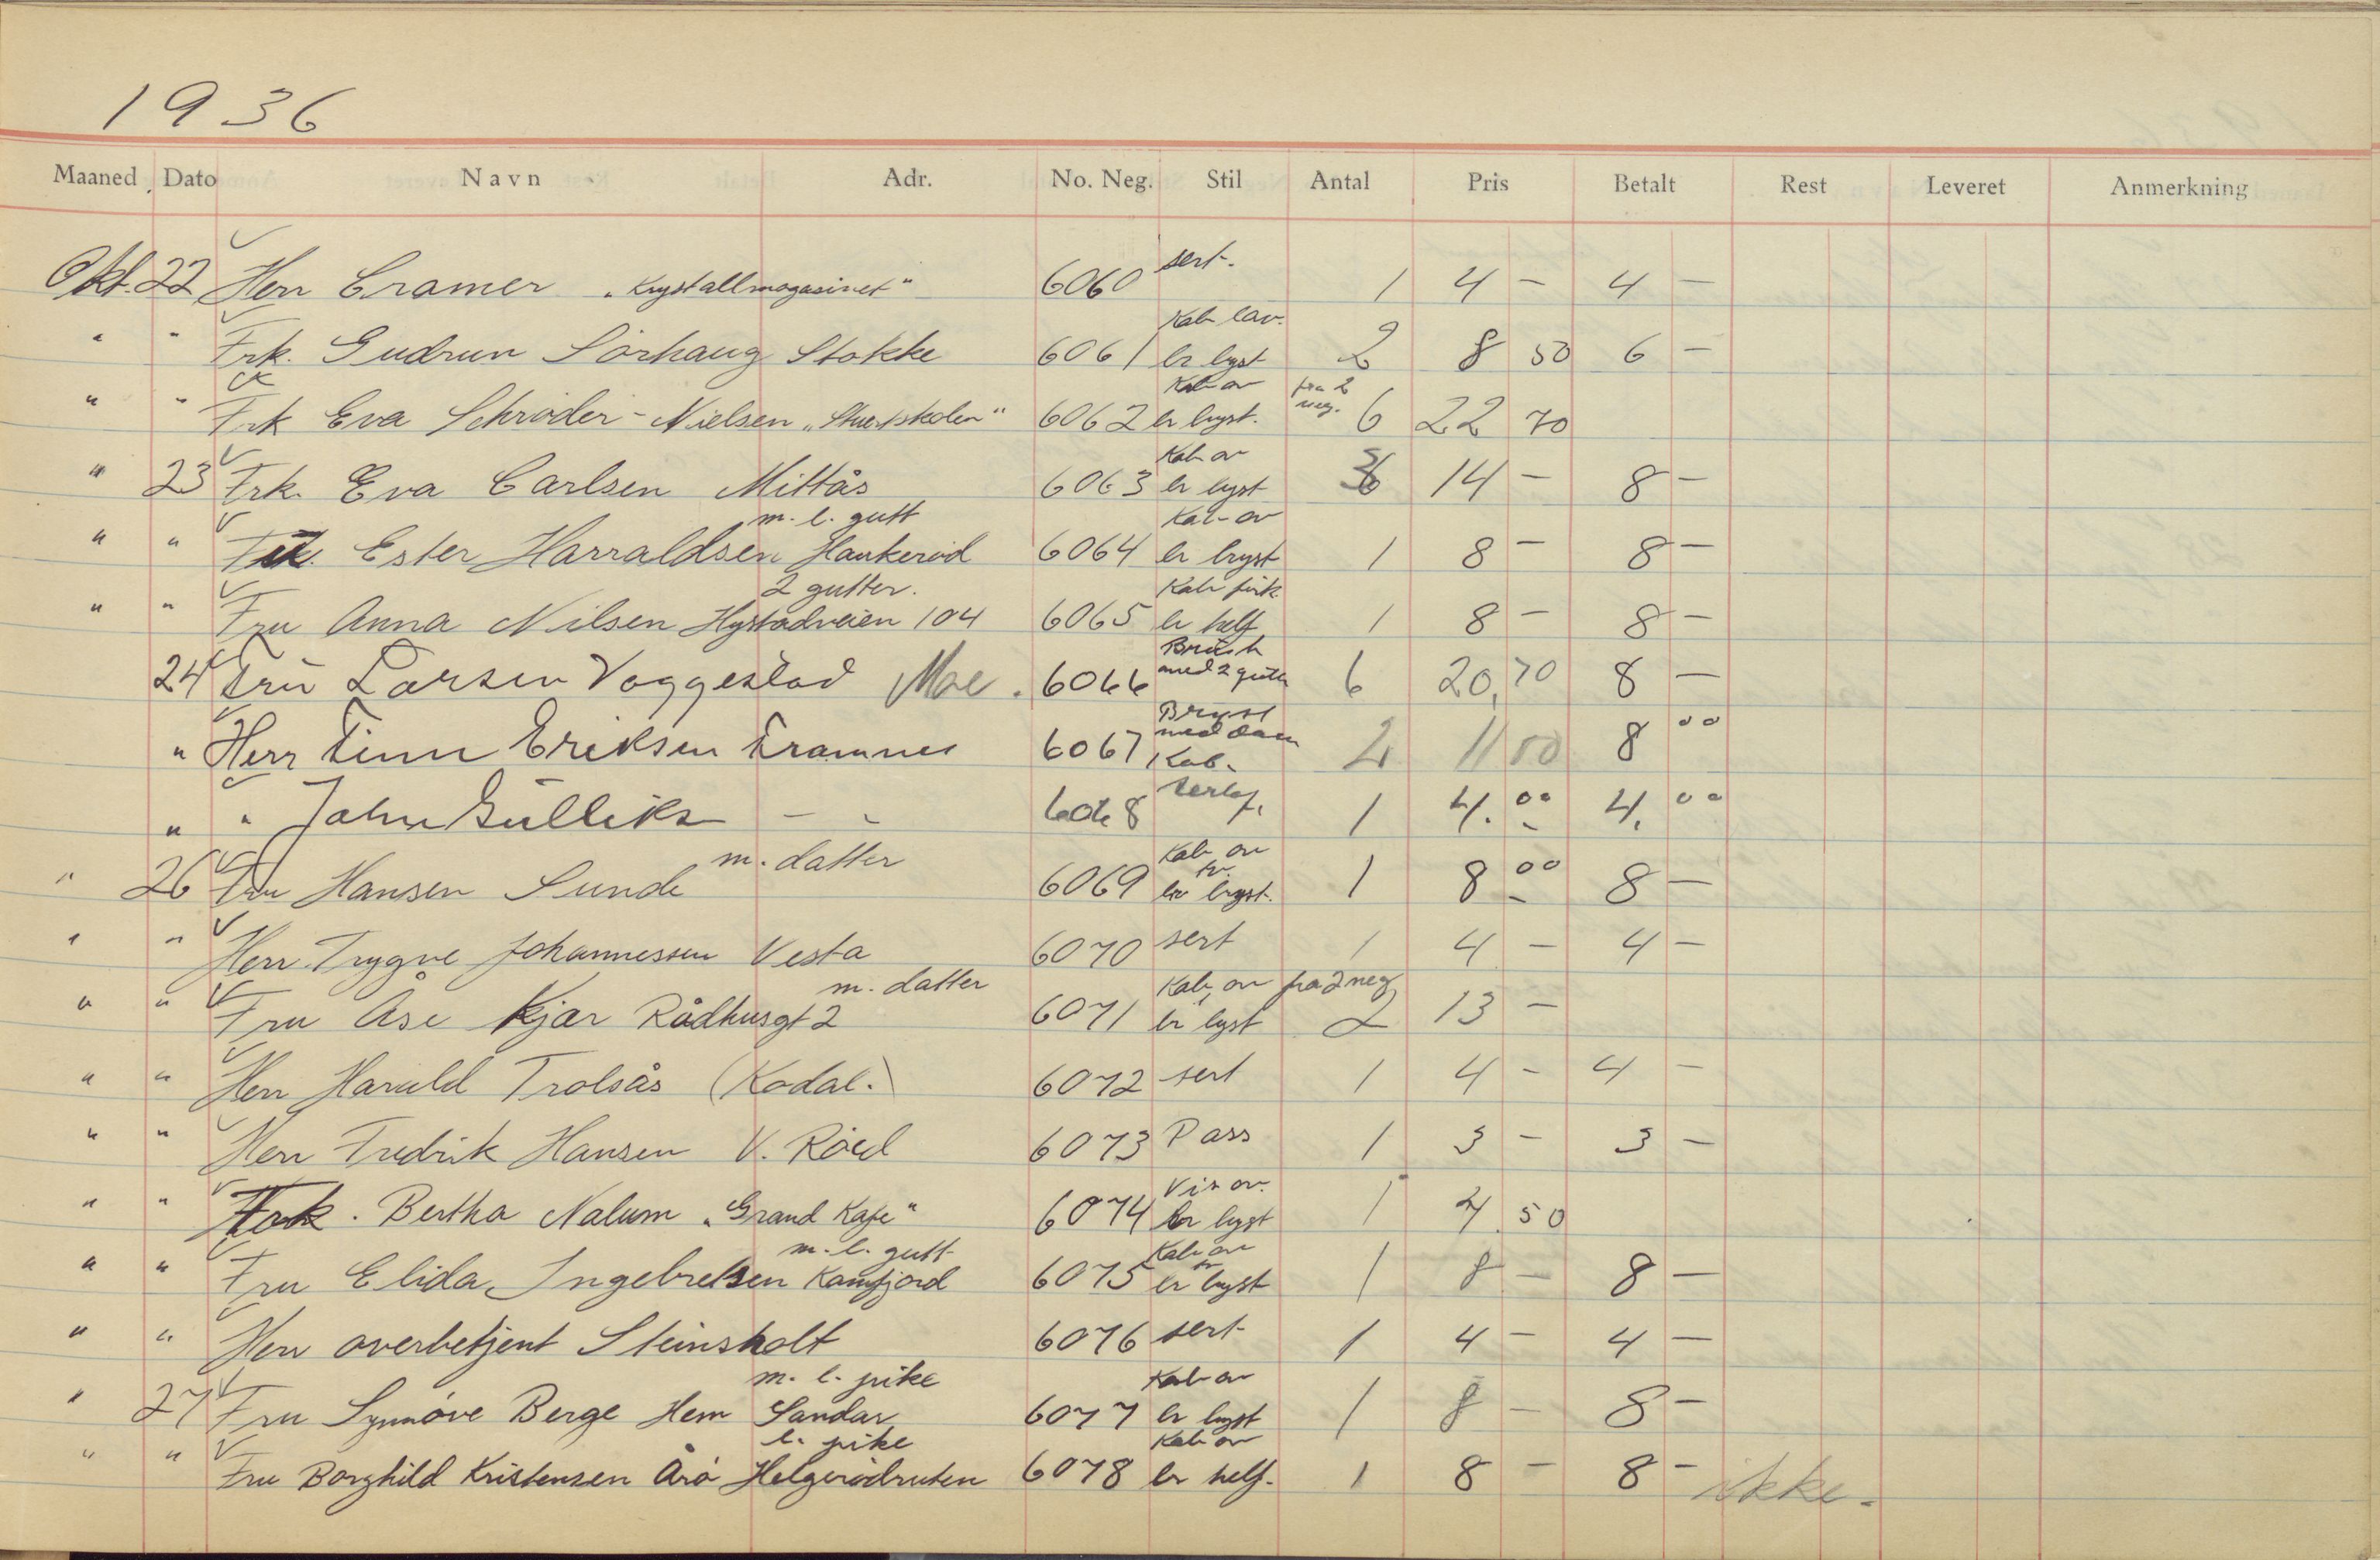 1936
Maaned Dato Navn Adr. No. Neg. Stil Antal Pris Betalt Rest Leveret Anmerkning
sert.
Okt. 22 Herr Cramer „Krystallmagasinet" 6060 1 4 - 4 -
Kab
" " Frk. Gudrun Sörhaug Stokke 6061 br byst 2 8 50 6 -
Kab av fra 2 neg.
" " Frk Eva Schröder-Nielsen 6062 br bryst. 6 22 70
Kab av
" 23 Frk. Eva Carlsen Mittås 6063 br byst 14 - 8 -
m. l. gutt Kab av
" " Ester Harraldsen Haukeröd 6064 br bryst 1 8 - 8 -
2 gutter. Kab
" " Fru Anna Nilsen Hystadveien 104 6065 br helf 1 8 - 8 -
24 Fru Larsen Voggestad Moe. 6066 med 2 6 20,70 8 -
Bryst
med dam
" Herr Finn Eriksen Framnes 6067 Kab. 2 11 50 8 00
" " John Gulliks - - 6068 1 4.00 4.00
m. datter Kab av
" 26 Fru Hansen Sunde 6069 br bryst. 1 8 00 8 -
" " Herr Trygve Johannessen Vesta 6070 sert 1 4 - 4 -
m. datter Kab, av fra 2 neg
" " Fru Åse Kjær Rådhusgt 2 6071 br byst 2 13 -
" " Herr Harald Trolsås (Kodal.) 6072 sert 1 4 - 4 -
" " Herr Fredrik Hansen V. Röed 6073 Pass 1 3 - 3 -
Vis av.
" " Bertha Nalum „Grand Kafe" 6074 br byst 1 4 50
m. l. gutt Kab av
" " Fru Elida Ingebretsen Kamfjord 6075 br bryst 1 8 - 8 -
" " Herr overbetjent Steinsholt 6076 sert 1 4 - 4 -
m. l. pike Kab av
" 27 Fru Synnöve Berge Hem Sandar 6077 br bryst 1 8 - 8 -
l. pike Kab av
" " Fru Borghild Kristensen Årö Helgerödruten 6078 br helf. 1 8 - 8 - ikke.